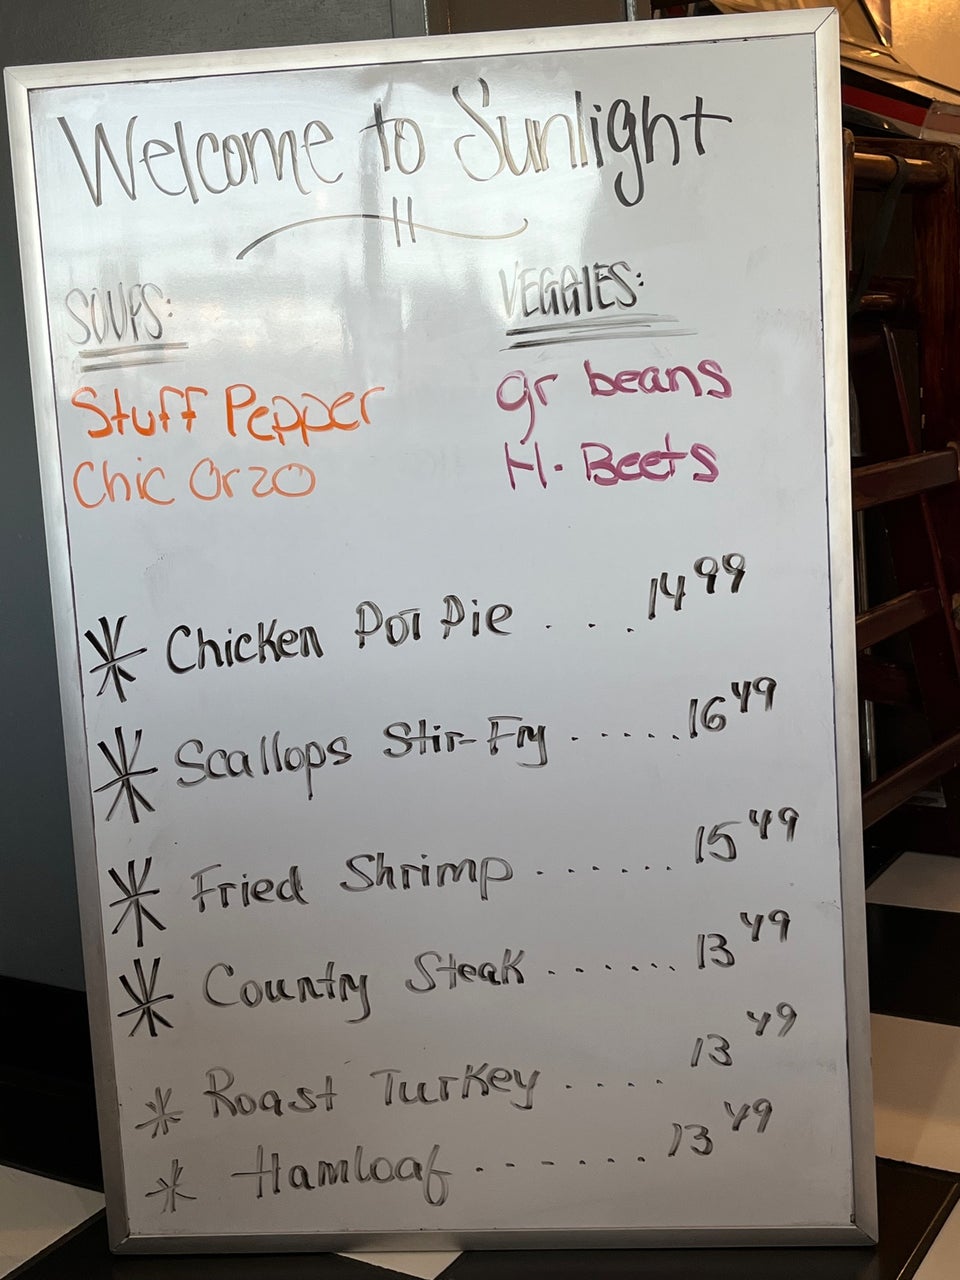 Welcome to Sunlight
SOUPS:
Stuff Pepper
Chic Orzo
VEGGIES:
gr beans
H. Beets
* Chicken Pot Pie . . . 14 99
* Scallops Stir-Fry ...... 16 49
* Fried Shrimp ....... 15 49
* Country Steak ....... 13 49
* Roast Turkey ..... 13 49
* Hamloaf ....... 13 49